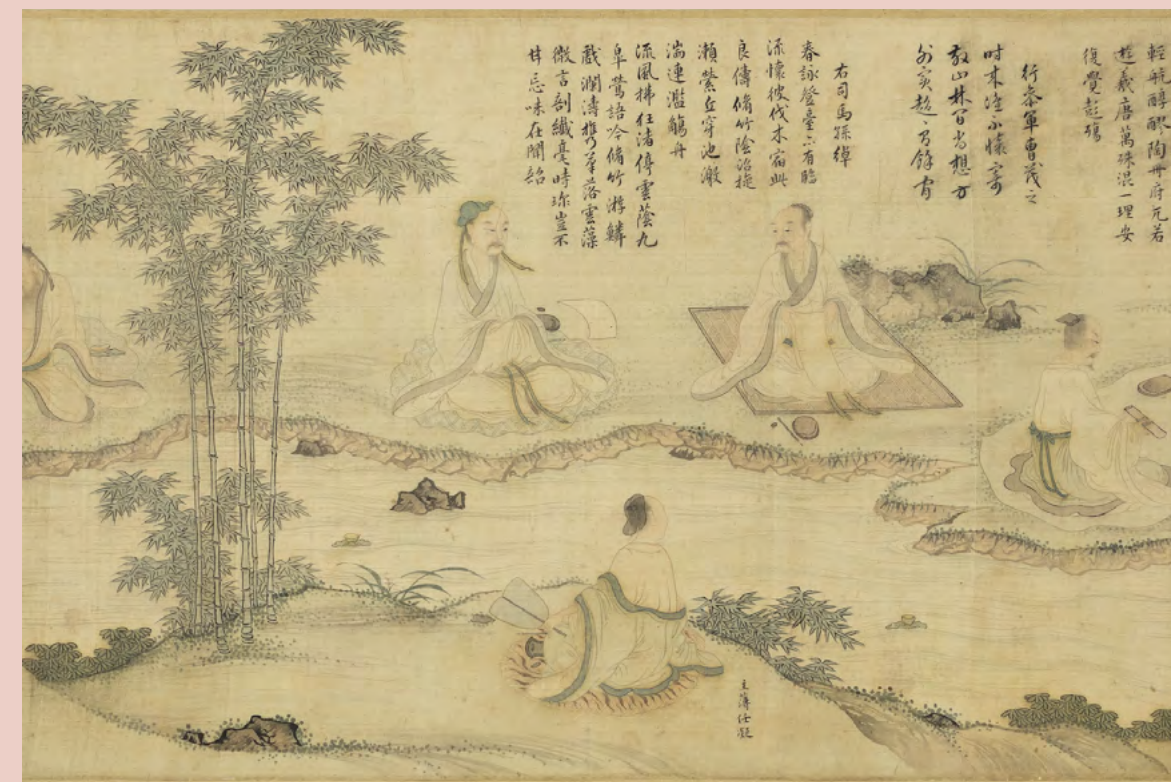 輕航醇醪陶丹府兀若
遊羲唐萬殊混一理安
復覺彭殤
行參軍曹茂之
时來誰不懷寄
散山林間尚想方
外賓迢〻有餘閒
右司馬孫綽
春詠登臺亦有臨
流懷彼伐木宿此
良儔脩竹蔭沼旋
瀨縈丘穿池激
湍連濫觴舟
流風拂枉渚停雲蔭九
皋鶯語吟脩竹游鱗
戲瀾濤攜筆落雲藻
微言剖纖毫時珍豈不
甘忘味在聞韶
主簿任凝